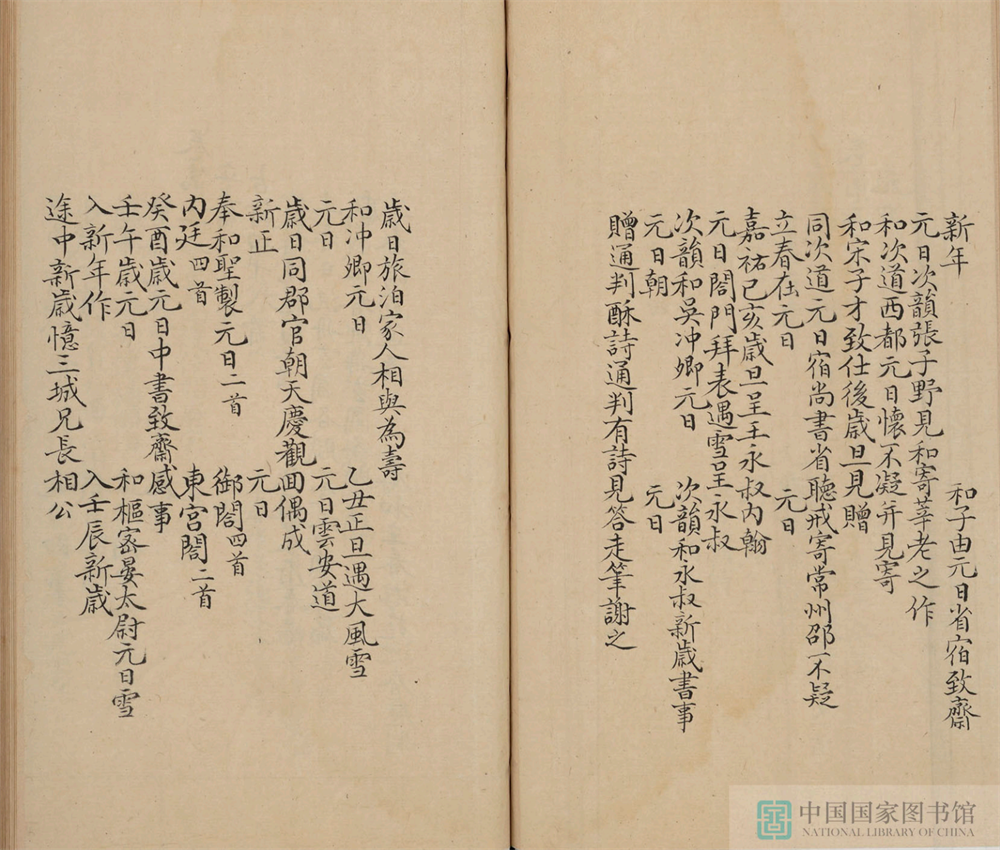 新年　和子由元日省宿致齋
元日次韻張子野見和寄莘老之作
和次道西都元日懷不凝并見寄
和宋子才致仕後歲旦見贈
同次道元日宿尚書省聽戒寄常州邵不疑
立春在元日　元日
嘉祐己亥歲旦呈王永叔內翰
元日閤門拜表遇雪呈永叔
次韻和吳冲卿元日　次韻和永叔新歲書事
元日朝　元日
贈通判酥詩通判有詩見答走筆謝之
歲日旅泊家人相與為壽
和冲卿元日　乙丑正旦遇大風雪
元日　元日雲安道
歲日同郡官朝天慶觀回偶成
新正　元日
奉和聖製元日二首　御閤四首
內廷四首　東宮閤二首
癸酉歲元日中書致齋感事
壬午歲元日　和樞宻晏太尉元日雪
入新年作　入壬辰新歲
途中新歲憶三城兄長相公
中国国家图书馆
NATIONAL LIBRARY OF CHINA